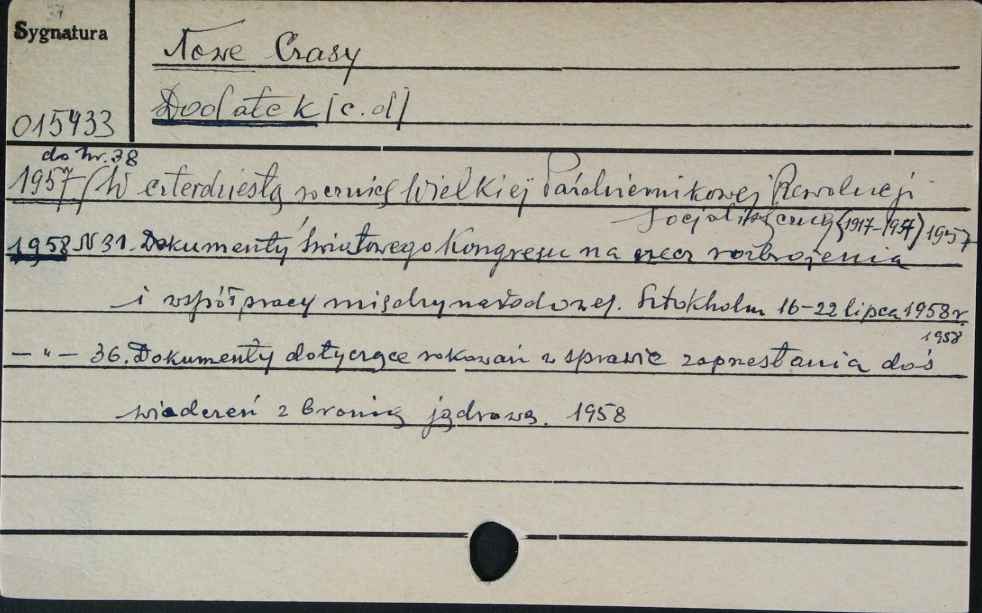 Sygnatura
Nowe Czasy
Dodatek [c.d]
015433
do nr. 38
1957 (W czterdziestą rocznicę Wielkiej Październikowej Rewolucji
Socjalistycznej (1917-1957) 1957
1958 N 31. Dokumenty Światowego Kongresu na rzecz rozbrojenia
i współpracy międzynarodowej. Sztokholm 16-22 lipca 1958 r.
1958
— " — 36. Dokumenty dotyczące rokowań w sprawie zaprzestania doś
wiadczeń z bronią jądrową. 1958